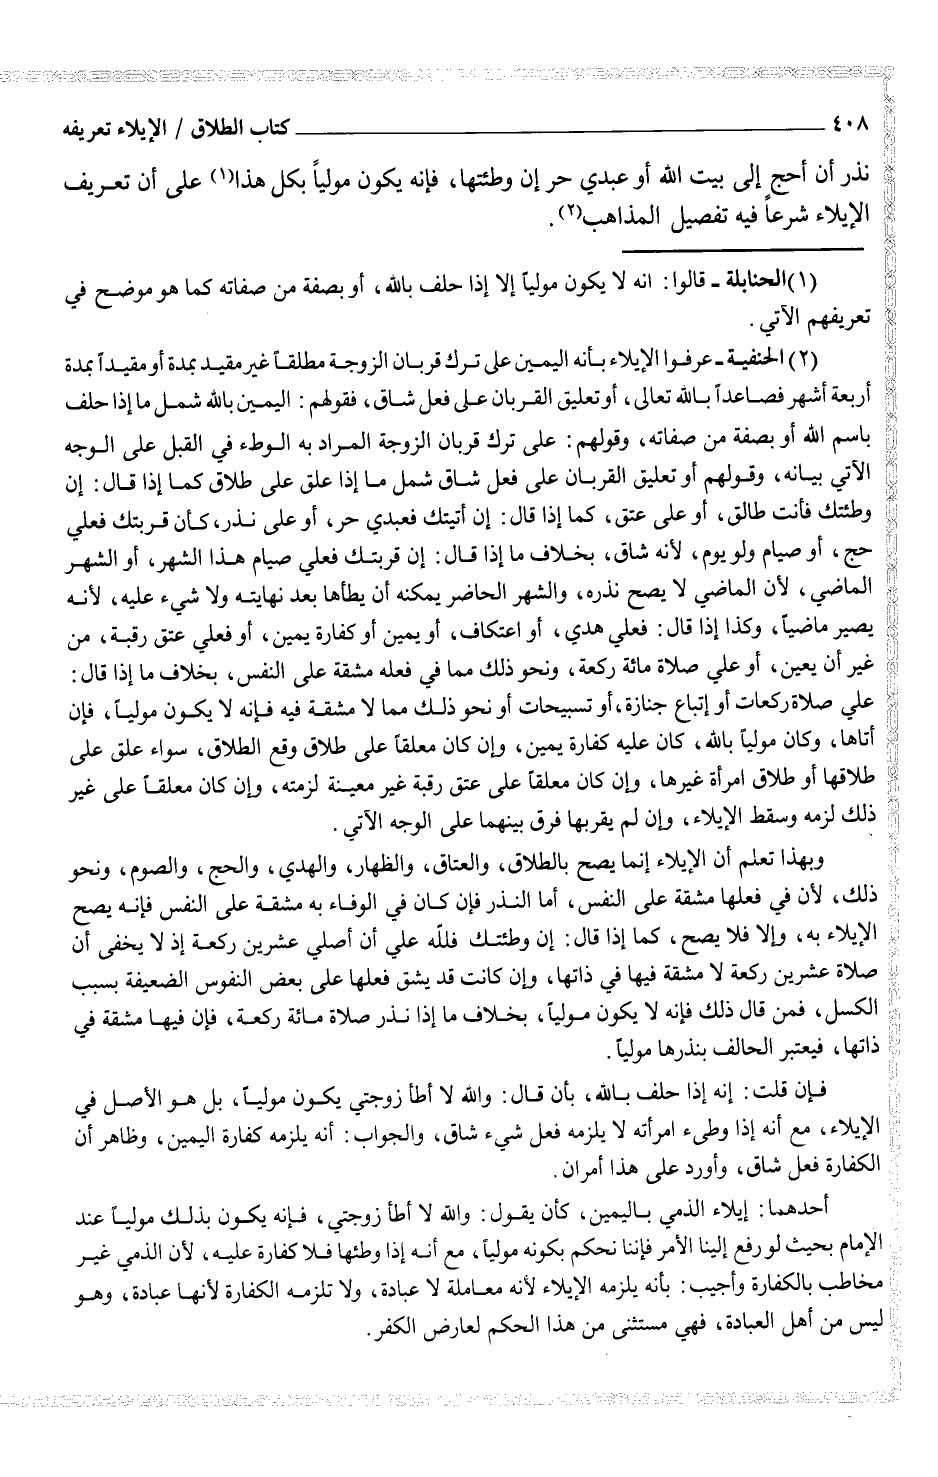 ٤٠٨ كتاب الطلاق / الإيلاء تعريفه
نذر أن أحج إلى بيت الله أو عبدي حر إن وطئتها، فإنه يكون مولياً بكل هذا(١) على أن تعريف
الإيلاء شرعاً فيه تفصيل المذاهب(٢).
(١) الحنابلة ـ قالوا: انه لا يكون مولياً إلا إذا حلف بالله، أو بصفة من صفاته كما هو موضح في
تعريفهم الآتي.
(٢) الحنفية ـ عرفوا الإيلاء بأنه اليمين على ترك قربان الزوجة مطلقاً غير مقيد بمدة أو مقيداً بمدة
أربعة أشهر فصاعداً بالله تعالى، أو تعليق القربان على فعل شاق، فقولهم: اليمين بالله شمل ما إذا حلف
باسم الله أو بصفة من صفاته، وقولهم: على ترك قربان الزوجة المراد به الوطء في القبل على الوجه
الآتي بيانه، وقولهم أو تعليق القربان على فعل شاق شمل ما إذا علق على طلاق كما إذا قال: إن
وطئتك فأنت طالق، أو على عتق، كما إذا قال: إن أتيتك فعبدي حر، أو على نذر، كأن قربتك فعلي
حج، أو صيام ولو يوم، لأنه شاق، بخلاف ما إذا قال: إن قربتك فعلي صيام هذا الشهر، أو الشهر
الماضي، لأن الماضي لا يصح نذره، والشهر الحاضر يمكنه أن يطأها بعد نهايته ولا شيء عليه، لأنه
يصير ماضياً، وكذا إذا قال: فعلي هدي، أو اعتكاف، أو يمين أو كفارة يمين، أو فعلي عتق رقبة، من
غير أن يعين، أو علي صلاة مائة ركعة، ونحو ذلك مما في فعله مشقة على النفس، بخلاف ما إذا قال:
علي صلاة ركعات أو إتباع جنازة، أو تسبيحات أو نحو ذلك مما لا مشقة فيه فإنه لا يكون مولياً، فإن
أتاها، وكان مولياً بالله، كان عليه كفارة يمين، وإن كان معلقاً على طلاق وقع الطلاق، سواء علق على
طلاقها أو طلاق امرأة غيرها، وإن كان معلقاً على عتق رقبة غير معينة لزمته، وإن كان معلقاً على غير
ذلك لزمه وسقط الإيلاء، وإن لم يقربها فرق بينهما على الوجه الآتي.
وبهذا تعلم أن الإيلاء إنما يصح بالطلاق، والعتاق، والظهار، والهدي، والحج، والصوم، ونحو
ذلك، لأن في فعلها مشقة على النفس، أما النذر فإن كان في الوفاء به مشقة على النفس فإنه يصح
الإيلاء به، وإلا فلا يصح، كما إذا قال: إن وطئتك فلله علي أن أصلي عشرين ركعة إذ لا يخفى أن
صلاة عشرين ركعة لا مشقة فيها في ذاتها، وإن كانت قد يشق فعلها على بعض النفوس الضعيفة بسبب
الكسل، فمن قال ذلك فإنه لا يكون مولياً، بخلاف ما إذا نذر صلاة مائة ركعة، فإن فيها مشقة في
ذاتها، فيعتبر الحالف بنذرها مولياً.
فإن قلت: إنه إذا حلف بالله، بأن قال: والله لا أطأ زوجتي يكون مولياً، بل هو الأصل في
الإيلاء، مع أنه إذا وطىء امرأته لا يلزمه فعل شيء شاق، والجواب: أنه يلزمه كفارة اليمين، وظاهر أن
الكفارة فعل شاق، وأورد على هذا أمران.
أحدهما: إيلاء الذمي باليمين، كأن يقول: والله لا أطأ زوجتي، فإنه يكون بذلك مولياً عند
الإمام بحيث لو رفع إلينا الأمر فإننا نحكم بكونه مولياً، مع أنه إذا وطئها فلا كفارة عليه، لأن الذمي غير
مخاطب بالكفارة وأجيب: بأنه يلزمه الإيلاء لأنه معاملة لا عبادة، ولا تلزمه الكفارة لأنها عبادة، وهو
ليس من أهل العبادة، فهي مستثنى من هذا الحكم لعارض الكفر.